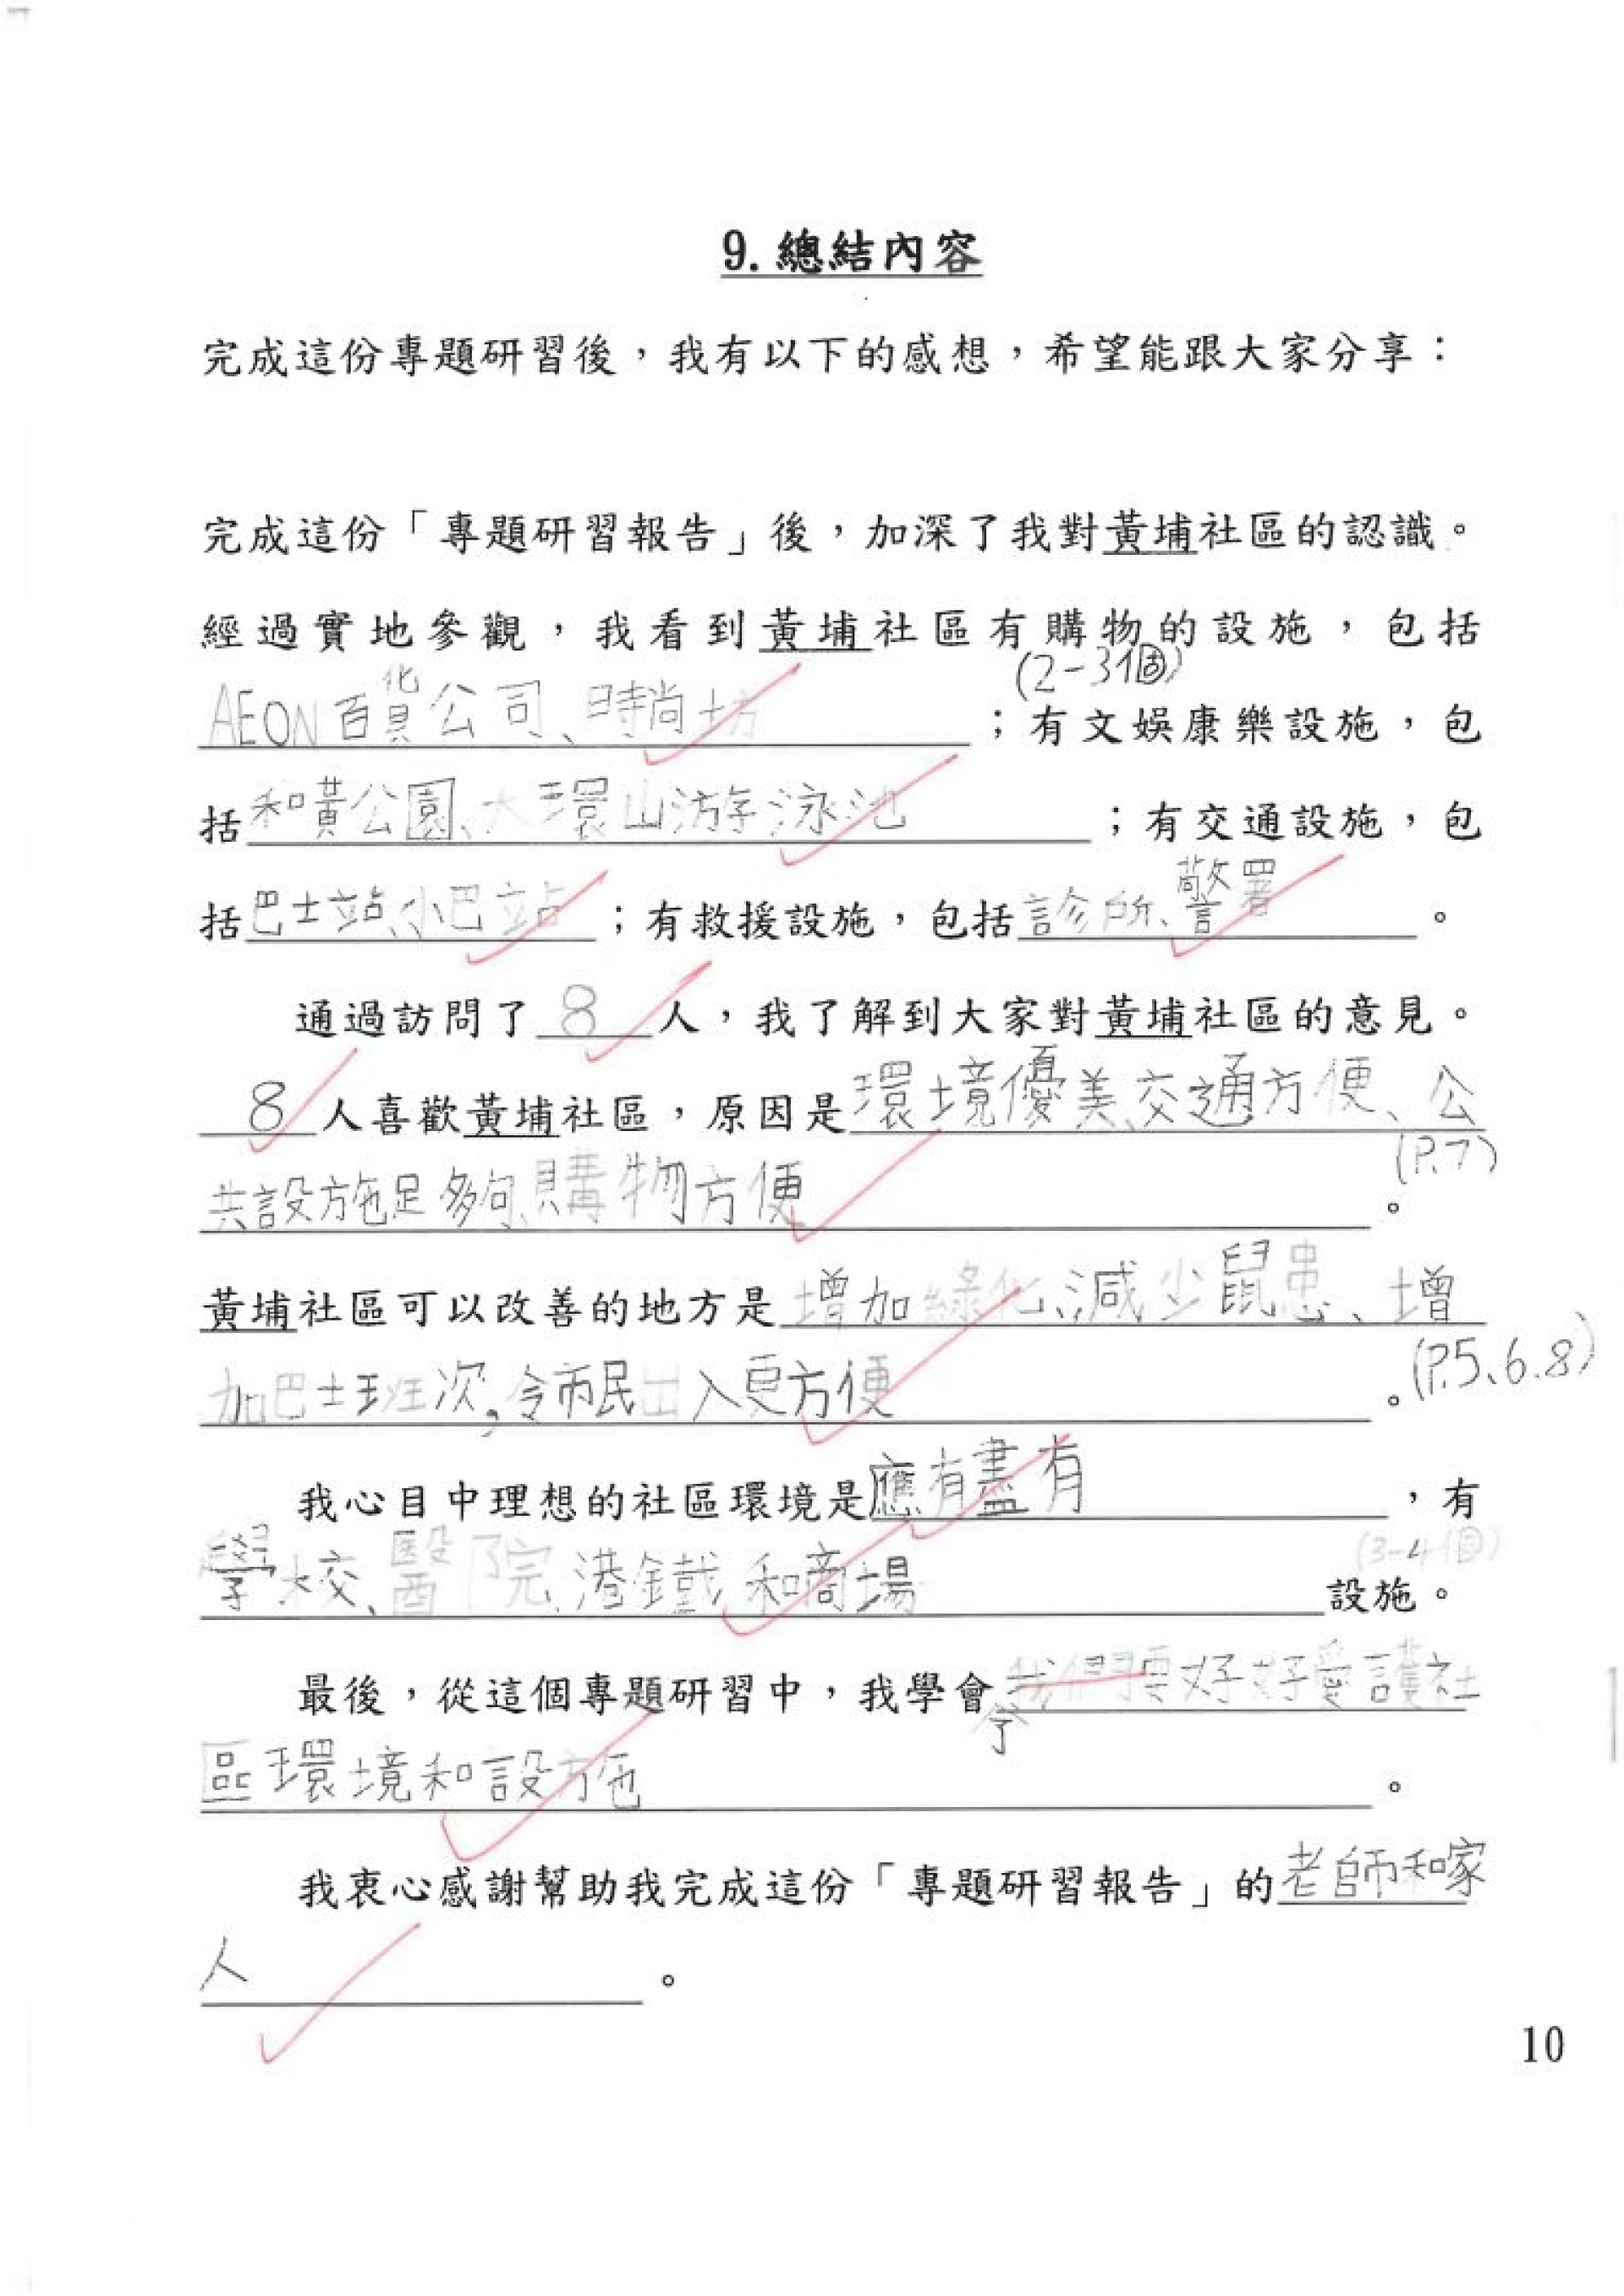 9. 總結內容
完成這份專題研習後，我有以下的感想，希望能跟大家分享：
完成這份「專題研習報告」後，加深了我對黃埔社區的認識。
經過實地參觀，我看到黃埔社區有購物的設施，包括
(2-3個)
AEON百貨公司、時尚坊；有文娛康樂設施，包
括和黃公園、大環山游泳池；有交通設施，包
括巴士站、小巴站；有救援設施，包括診所、警署。
通過訪問了8人，我了解到大家對黃埔社區的意見。
8人喜歡黃埔社區，原因是環境優美、交通方便、公
(P.7)
共設施足夠、購物方便。
黃埔社區可以改善的地方是增加綠化、減少鼠患、增
加巴士班次，令市民出入更方便。(P.5、6、8)
我心目中理想的社區環境是應有盡有，有
(3-4個)
學校、醫院、港鐵和商場設施。
最後，從這個專題研習中，我學會了我們要好好愛護社
區環境和設施。
我衷心感謝幫助我完成這份「專題研習報告」的老師和家
人。
10